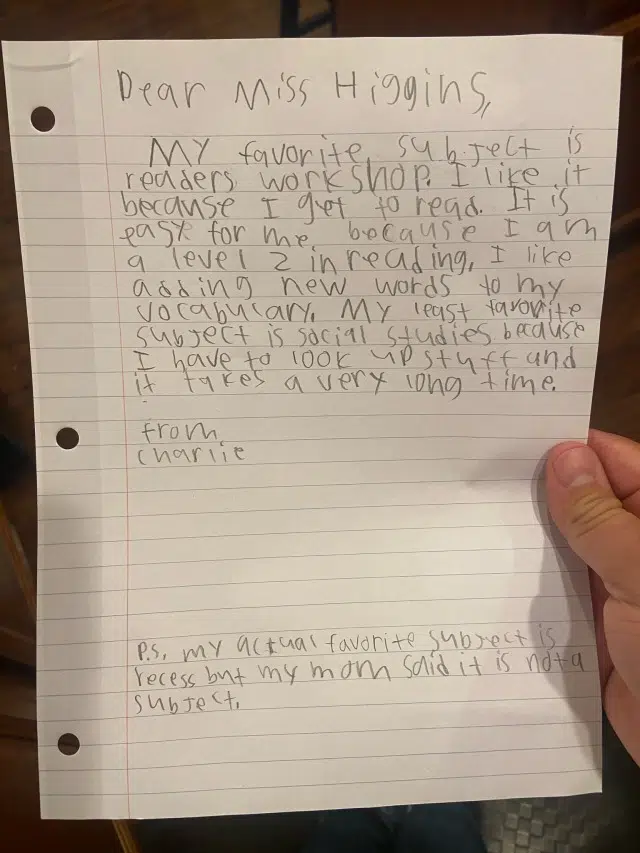 Dear Miss Higgins,
My favorite subject is
readers workshop. I like it
because I get to read. It is
easy for me because I am
a level 2 in reading, I like
adding new words to my
vocabulary. My least favorite
subject is social studies because
I have to look up stuff and
it takes a very long time.
from
Charlie
P.S. my actual favorite subject is
recess but my mom said it is not a
subject.